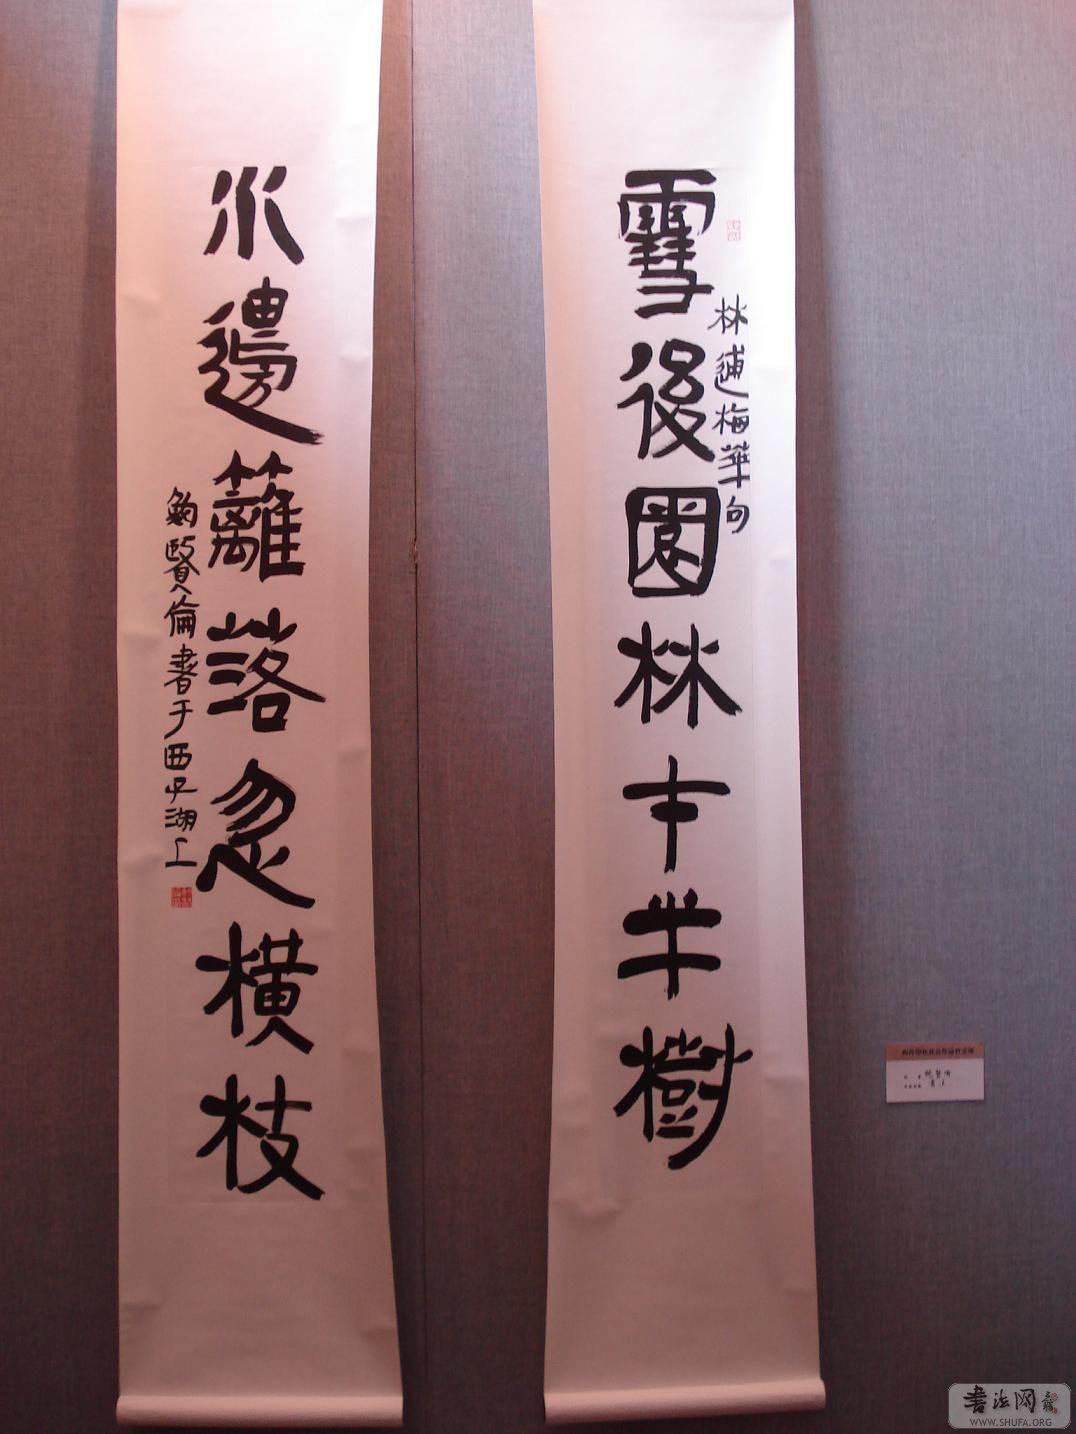 雪後園林才半樹
林逋梅華句
水邊籬落忽橫枝
鮑賢倫書于西子湖上
鮑賢倫
書法网
WWW.SHUFA.ORG